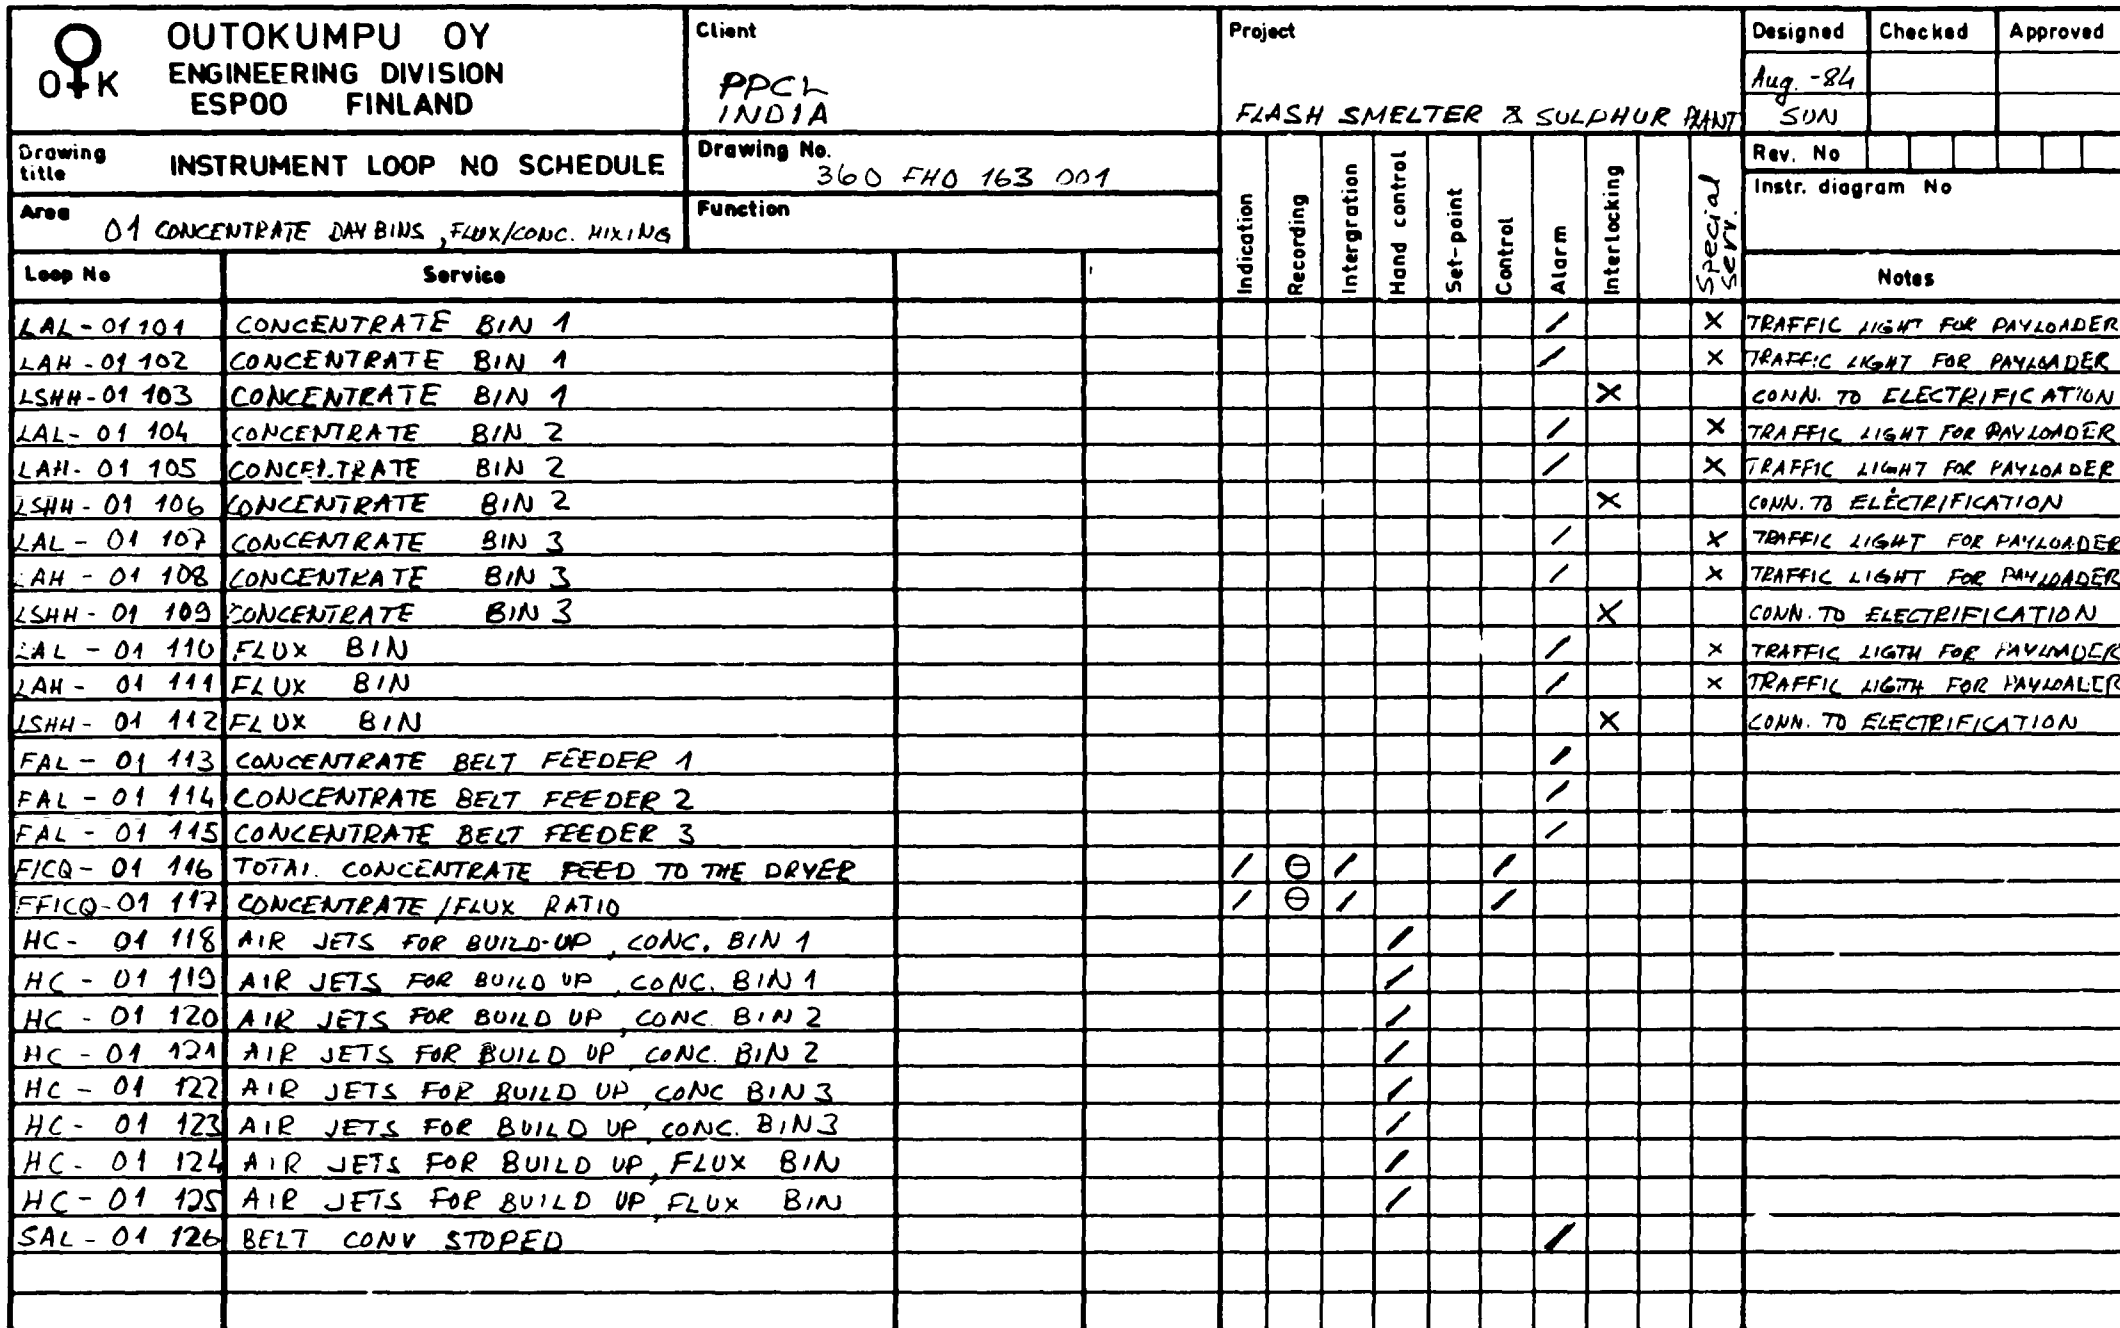 OUTOKUMPU OY
ENGINEERING DIVISION
ESPOO FINLAND
O K
Client
PPCL
INDIA
Project
FLASH SMELTER & SULPHUR PLANT
Designed Checked Approved
Aug. -84
SUN
Drawing title INSTRUMENT LOOP NO SCHEDULE
Drawing No.
360 FHO 163 001
Rev. No
Instr. diagram No
Area
01 CONCENTRATE DAY BINS, FLUX/CONC. MIXING
Function
Indication Recording Intergration Hand control Set-point Control Alarm Interlocking Special Serv.
Loop No Service Notes
LAL - 01 101 CONCENTRATE BIN 1 / X TRAFFIC LIGHT FOR PAYLOADER
LAH - 01 102 CONCENTRATE BIN 1 / X TRAFFIC LIGHT FOR PAYLOADER
LSHH - 01 103 CONCENTRATE BIN 1 X CONN. TO ELECTRIFICATION
LAL - 01 104 CONCENTRATE BIN 2 / X TRAFFIC LIGHT FOR PAYLOADER
LAH - 01 105 CONCENTRATE BIN 2 / X TRAFFIC LIGHT FOR PAYLOADER
LSHH - 01 106 CONCENTRATE BIN 2 X CONN. TO ELECTRIFICATION
LAL - 01 107 CONCENTRATE BIN 3 / X TRAFFIC LIGHT FOR PAYLOADER
LAH - 01 108 CONCENTRATE BIN 3 / X TRAFFIC LIGHT FOR PAYLOADER
LSHH - 01 109 CONCENTRATE BIN 3 X CONN. TO ELECTRIFICATION
LAL - 01 110 FLUX BIN / X TRAFFIC LIGTH FOR PAYLOADER
LAH - 01 111 FLUX BIN / X TRAFFIC LIGTH FOR PAYLOADER
LSHH - 01 112 FLUX BIN X CONN. TO ELECTRIFICATION
FAL - 01 113 CONCENTRATE BELT FEEDER 1 /
FAL - 01 114 CONCENTRATE BELT FEEDER 2 /
FAL - 01 115 CONCENTRATE BELT FEEDER 3 /
FICQ - 01 116 TOTAL CONCENTRATE FEED TO THE DRYER / ⊖ / /
FFICQ - 01 117 CONCENTRATE / FLUX RATIO / ⊖ / /
HC - 01 118 AIR JETS FOR BUILD-UP, CONC. BIN 1 /
HC - 01 119 AIR JETS FOR BUILD UP, CONC. BIN 1 /
HC - 01 120 AIR JETS FOR BUILD UP, CONC. BIN 2 /
HC - 01 121 AIR JETS FOR BUILD UP, CONC. BIN 2 /
HC - 01 122 AIR JETS FOR BUILD UP, CONC BIN 3 /
HC - 01 123 AIR JETS FOR BUILD UP, CONC. BIN 3 /
HC - 01 124 AIR JETS FOR BUILD UP, FLUX BIN /
HC - 01 125 AIR JETS FOR BUILD UP, FLUX BIN /
SAL - 01 126 BELT CONV STOPED /